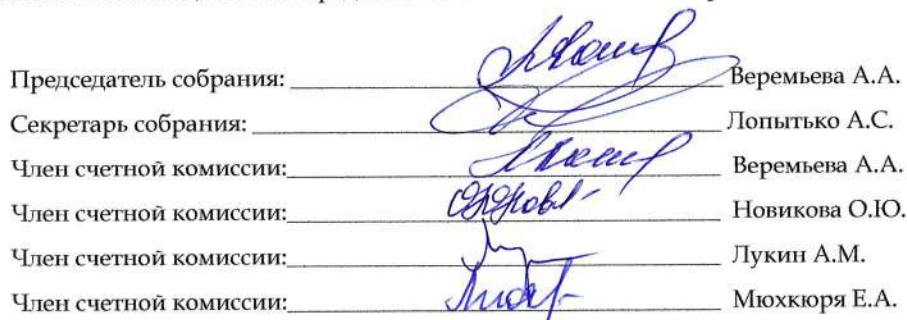 Председатель собрания: Веремьева А.А.
Секретарь собрания: Лопытько А.С.
Член счетной комиссии: Веремьева А.А.
Член счетной комиссии: Новикова О.Ю.
Член счетной комиссии: Лукин А.М.
Член счетной комиссии: Мюхкюря Е.А.